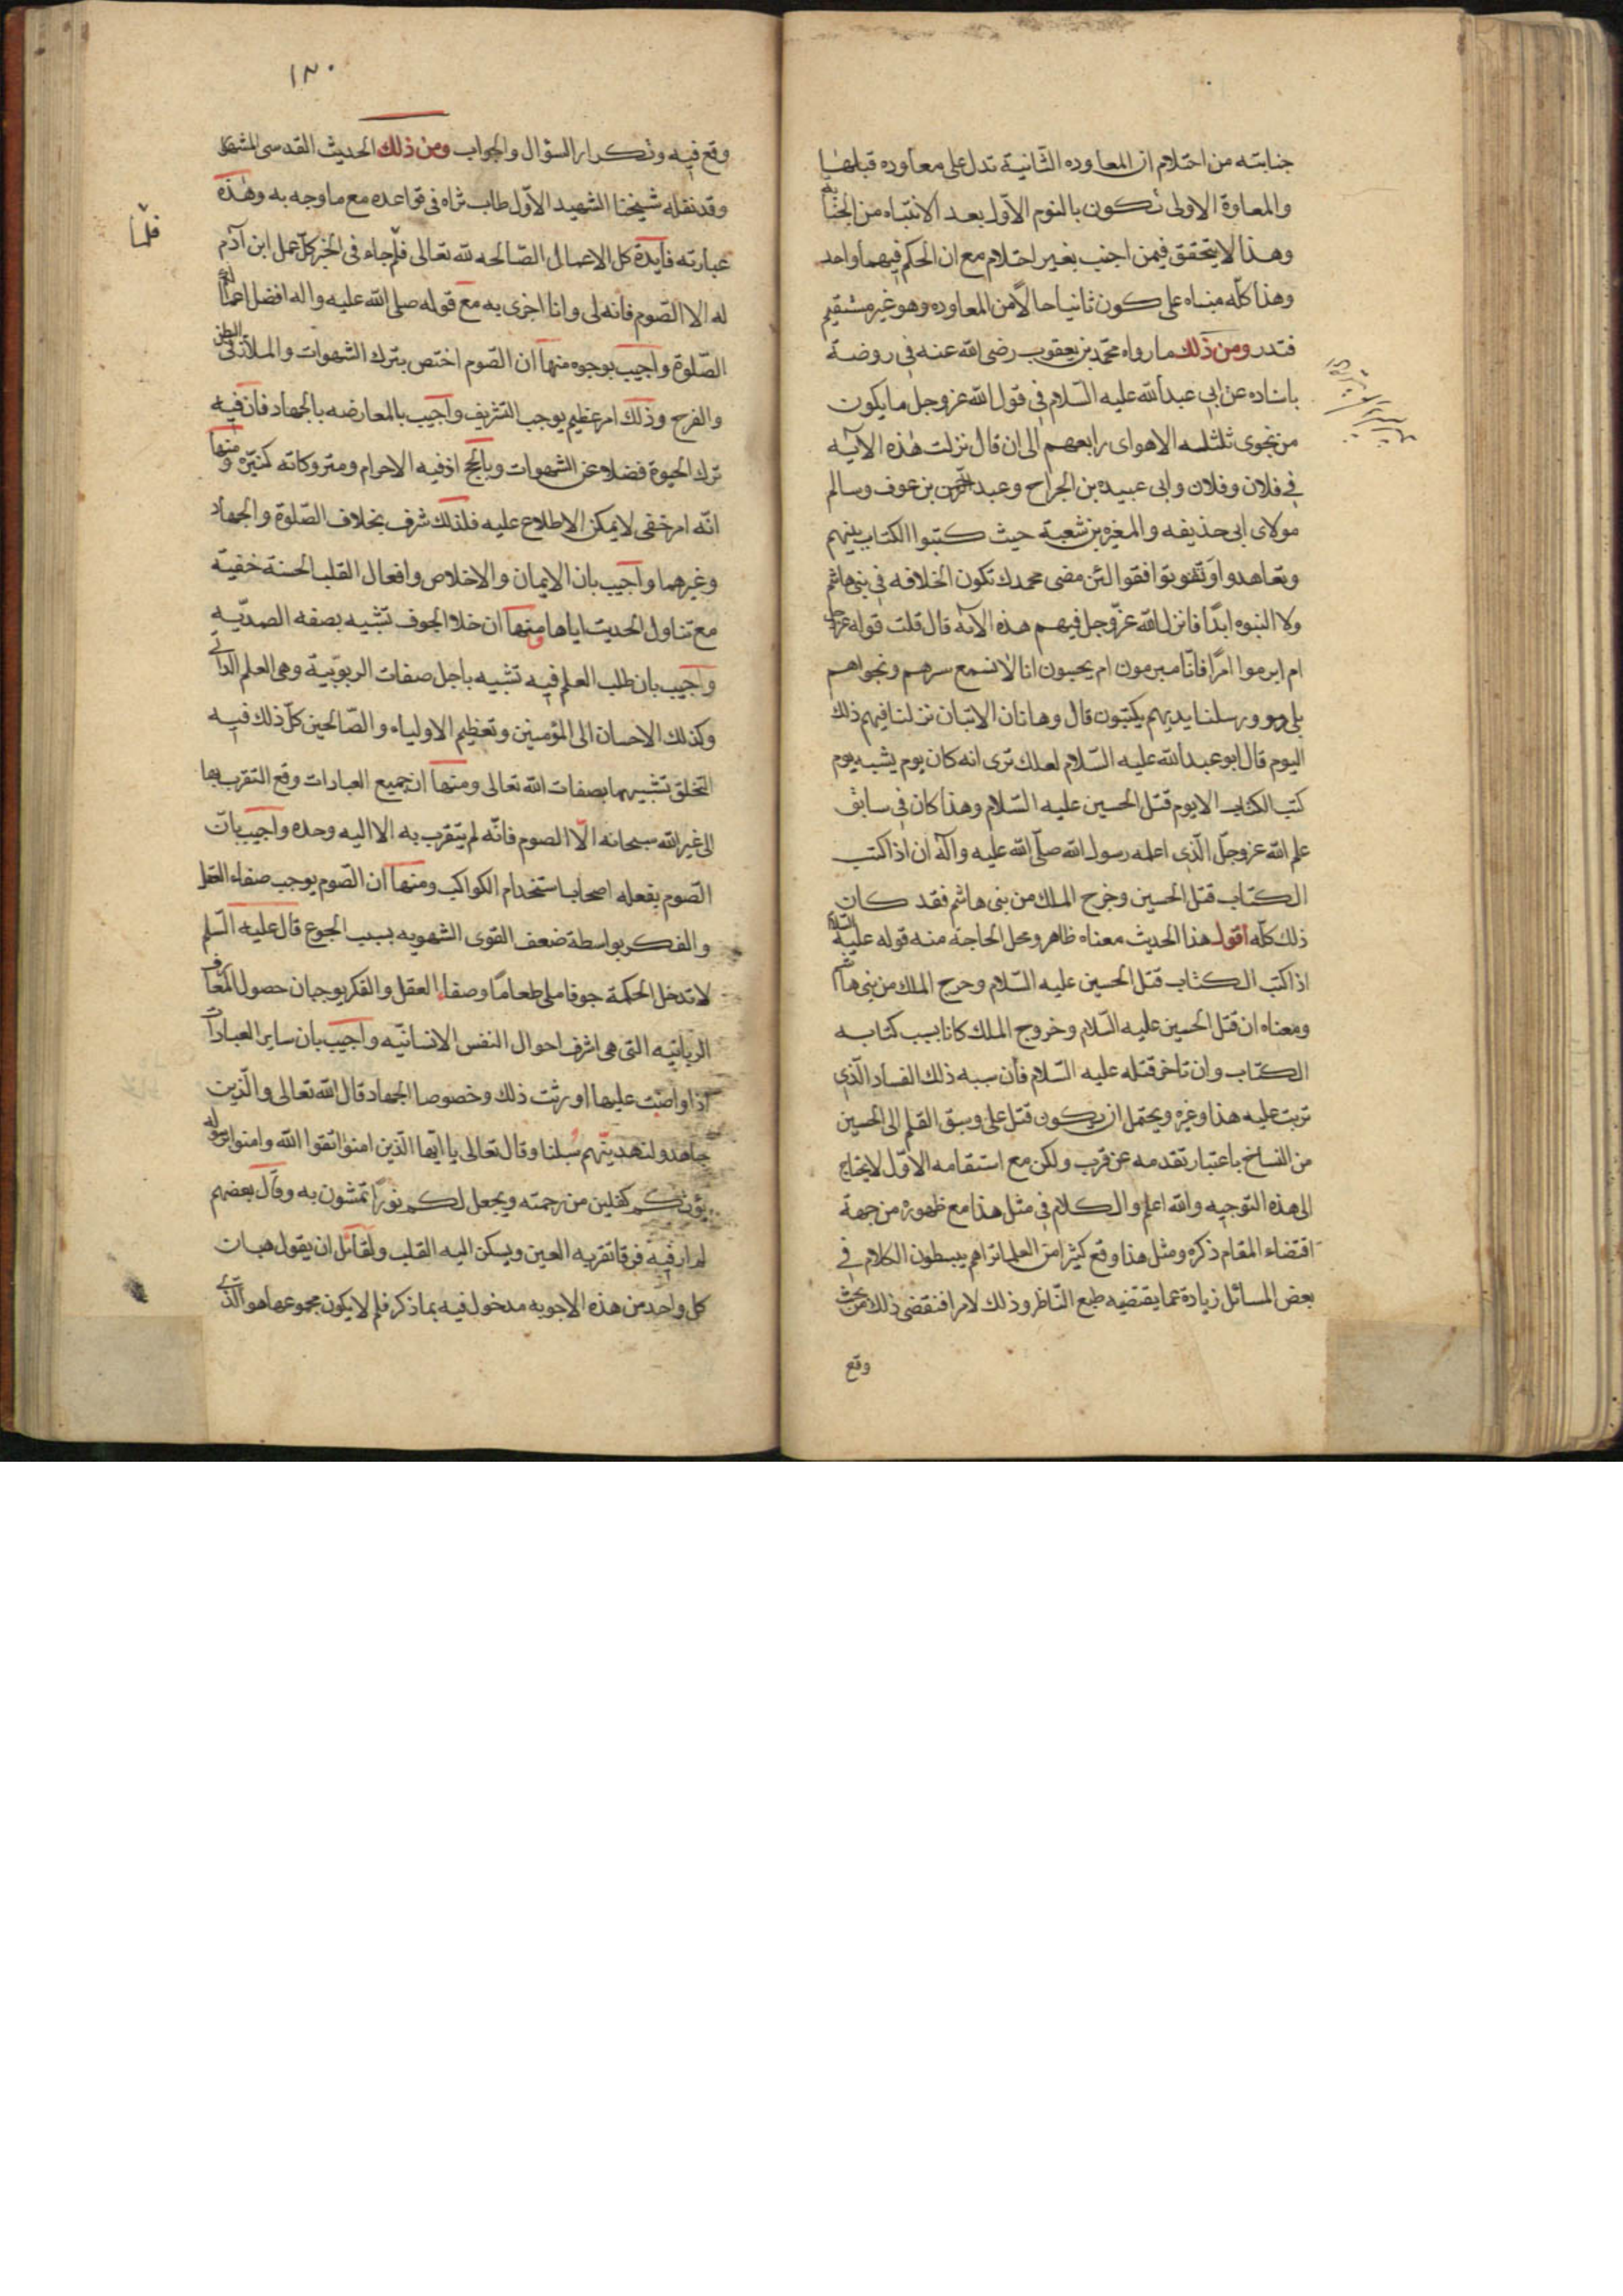 جنابته من احتلام ان المعاوده الثانية تدل على معاوده قبلها
والمعاوة الاولى تكون بالنوم الاول بعد الانتباه من الجنابة
وهذا لا يتحقق فيمن اجنب بغير احتلام مع ان الحكم فيهما واحد
وهذا كله مبناه على كون ثانيا حالا من المعاوده وهو غير مستقيم
فتدبر ومن ذلك ما رواه محمد بن يعقوب رضى الله عنه في روضة
باسناده عن ابى عبد الله عليه السلام في قول الله عز وجل ما يكون
من نجوى ثلثة الا هو اى رابعهم الى ان قال نزلت هذه الآيه
في فلان وفلان وابى عبيده بن الجراح وعبد الرحمن بن عوف وسالم
مولاى ابى حذيفه والمغيره بن شعبة حيث كتبوا الكتاب بينهم
وتعاهدوا وتوافقوا لئن مضى محمد لا تكون الخلافه في بنى هاشم
ولا النبوه ابدا فانزل الله عز وجل فيهم هذه الآيه قال قلت قوله عز وجل
ام ابرموا امرا فانا مبرمون ام يحسبون انا لا نسمع سرهم ونجواهم
بلى ورسلنا لديهم يكتبون قال وهاتان الايتان نزلتا فيهم ذلك
اليوم قال ابو عبد الله عليه السلام لعلك ترى انه كان يوم يشبه يوم
كتب الكتاب الا يوم قتل الحسين عليه السلام وهذا كان في سابق
علم الله عز وجل الذي اعلمه رسول الله صلى الله عليه وآله ان اذا كتب
الكتاب قتل الحسين وخرج الملك من بنى هاشم فقد كان
ذلك كله اقول هذا الحديث معناه ظاهر ومحل الحاجة منه قوله عليه السلام
اذا كتب الكتاب قتل الحسين عليه السلام وخرج الملك من بنى هاشم
ومعناه ان قتل الحسين عليه السلام وخروج الملك كانا بسبب كتابه
الكتاب وان تاخر قتله عليه السلام فان سببه ذلك الفساد الذي
ترتب عليه هذا وغيره ويحتمل ان يكون قتل على وسبق القلم الى الحسين
من النساخ باعتبار تقدمه عن قرب ولكن مع استقامه الاول لا يحتاج
الى هذه التوجيه والله اعلم والكلام في مثل هذا مع ظهوره من جهة
اقتضاء المقام ذكره ومثل هذا وقع كثيرا من العلما تراهم يبسطون الكلام في
بعض المسائل زيادة عما يقتضيه طبع الناظر وذلك لامر اقتضى ذلك من بحث
وقع
١٣٠
وقع فيه وتكرار السؤال والجواب ومن ذلك الحديث القدسى المشكل
وقد نقله شيخنا الشهيد الاول طاب ثراه في قواعده مع ما وجه به وهذه
عبارته فايدة كل الاعمال الصالحه لله تعالى فلم جاء فى الخبر كل عمل ابن آدم
فلما
له الا الصوم فانه لى وانا اجزى به مع قوله صلى الله عليه واله افضل اعمالكم
الصلوة واجيب بوجوه منها ان الصوم اختص بترك الشهوات والملاذ فى البطن
والفرج وذلك امر عظيم يوجب التشريف واجيب بالمعارضه بالجهاد فان فيه
ترك الحيوة فضلا عن الشهوات وبالحج اذ فيه الاحرام ومتروكاته كثيرة ومنها
انه امر خفى لا يمكن الاطلاع عليه فلذلك شرف بخلاف الصلوة والجهاد
وغيرهما واجيب بان الايمان والاخلاص وافعال القلب الحسنة خفية
مع تناول الحديث اياها ومنها ان خلاء الجوف تشبيه بصفه الصمديه
واجيب بان طلب العلم فيه تشبيه باجل صفات الربوبية وهى العلم الذاتى
وكذلك الاحسان الى المؤمنين وتعظيم الاولياء والصالحين كل ذلك فيه
التخلق تشبيهما بصفات الله تعالى ومنها ان جميع العبادات وقع التقرب بها
الى غير الله سبحانه الا الصوم فانه لم يتقرب به الا اليه وحده واجيب بان
الصوم يفعله اصحاب استخدام الكواكب ومنها ان الصوم يوجب صفاء العقل
والفكر بواسطة ضعف القوى الشهويه بسبب الجوع قال عليه السلم
لا تدخل الحكمة جوفا ملى طعاما وصفاء العقل والفكر يوجبان حصول المعارف
الربانيه التى هى اشرف احوال النفس الانسانيه واجيب بان ساير العبادات
اذا واضبت عليها اورثت ذلك وخصوصا الجهاد قال الله تعالى والذين
جاهدوا لنهدينهم سبلنا وقال تعالى يا ايها الذين امنوا اتقوا الله وامنوا برسوله
يؤتكم كفلين من رحمته ويجعل لكم نورا تمشون به وقال بعضهم
لم ار فيه فرقا تقر به العين ويسكن اليه القلب ولقائل ان يقول هب ان
كل واحد من هذه الاجوبه مدخول فيه بما ذكر فلم لا يكون مجموعها هو الذى